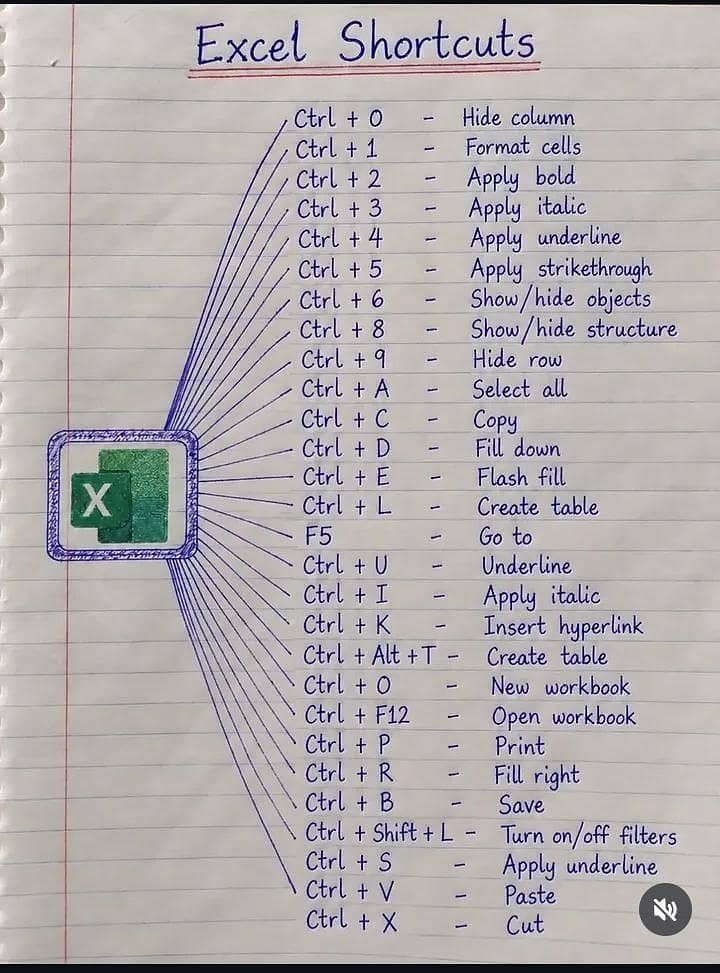 Excel Shortcuts
Ctrl + 0 - Hide column
Ctrl + 1 - Format cells
Ctrl + 2 - Apply bold
Ctrl + 3 - Apply italic
Ctrl + 4 - Apply underline
Ctrl + 5 - Apply strikethrough
Ctrl + 6 - Show/hide objects
Ctrl + 8 - Show/hide structure
Ctrl + 9 - Hide row
Ctrl + A - Select all
Ctrl + C - Copy
Ctrl + D - Fill down
Ctrl + E - Flash fill
Ctrl + L - Create table
F5 - Go to
Ctrl + U - Underline
Ctrl + I - Apply italic
Ctrl + K - Insert hyperlink
Ctrl + Alt + T - Create table
Ctrl + O - New workbook
Ctrl + F12 - Open workbook
Ctrl + P - Print
Ctrl + R - Fill right
Ctrl + B - Save
Ctrl + Shift + L - Turn on/off filters
Ctrl + S - Apply underline
Ctrl + V - Paste
Ctrl + X - Cut
X